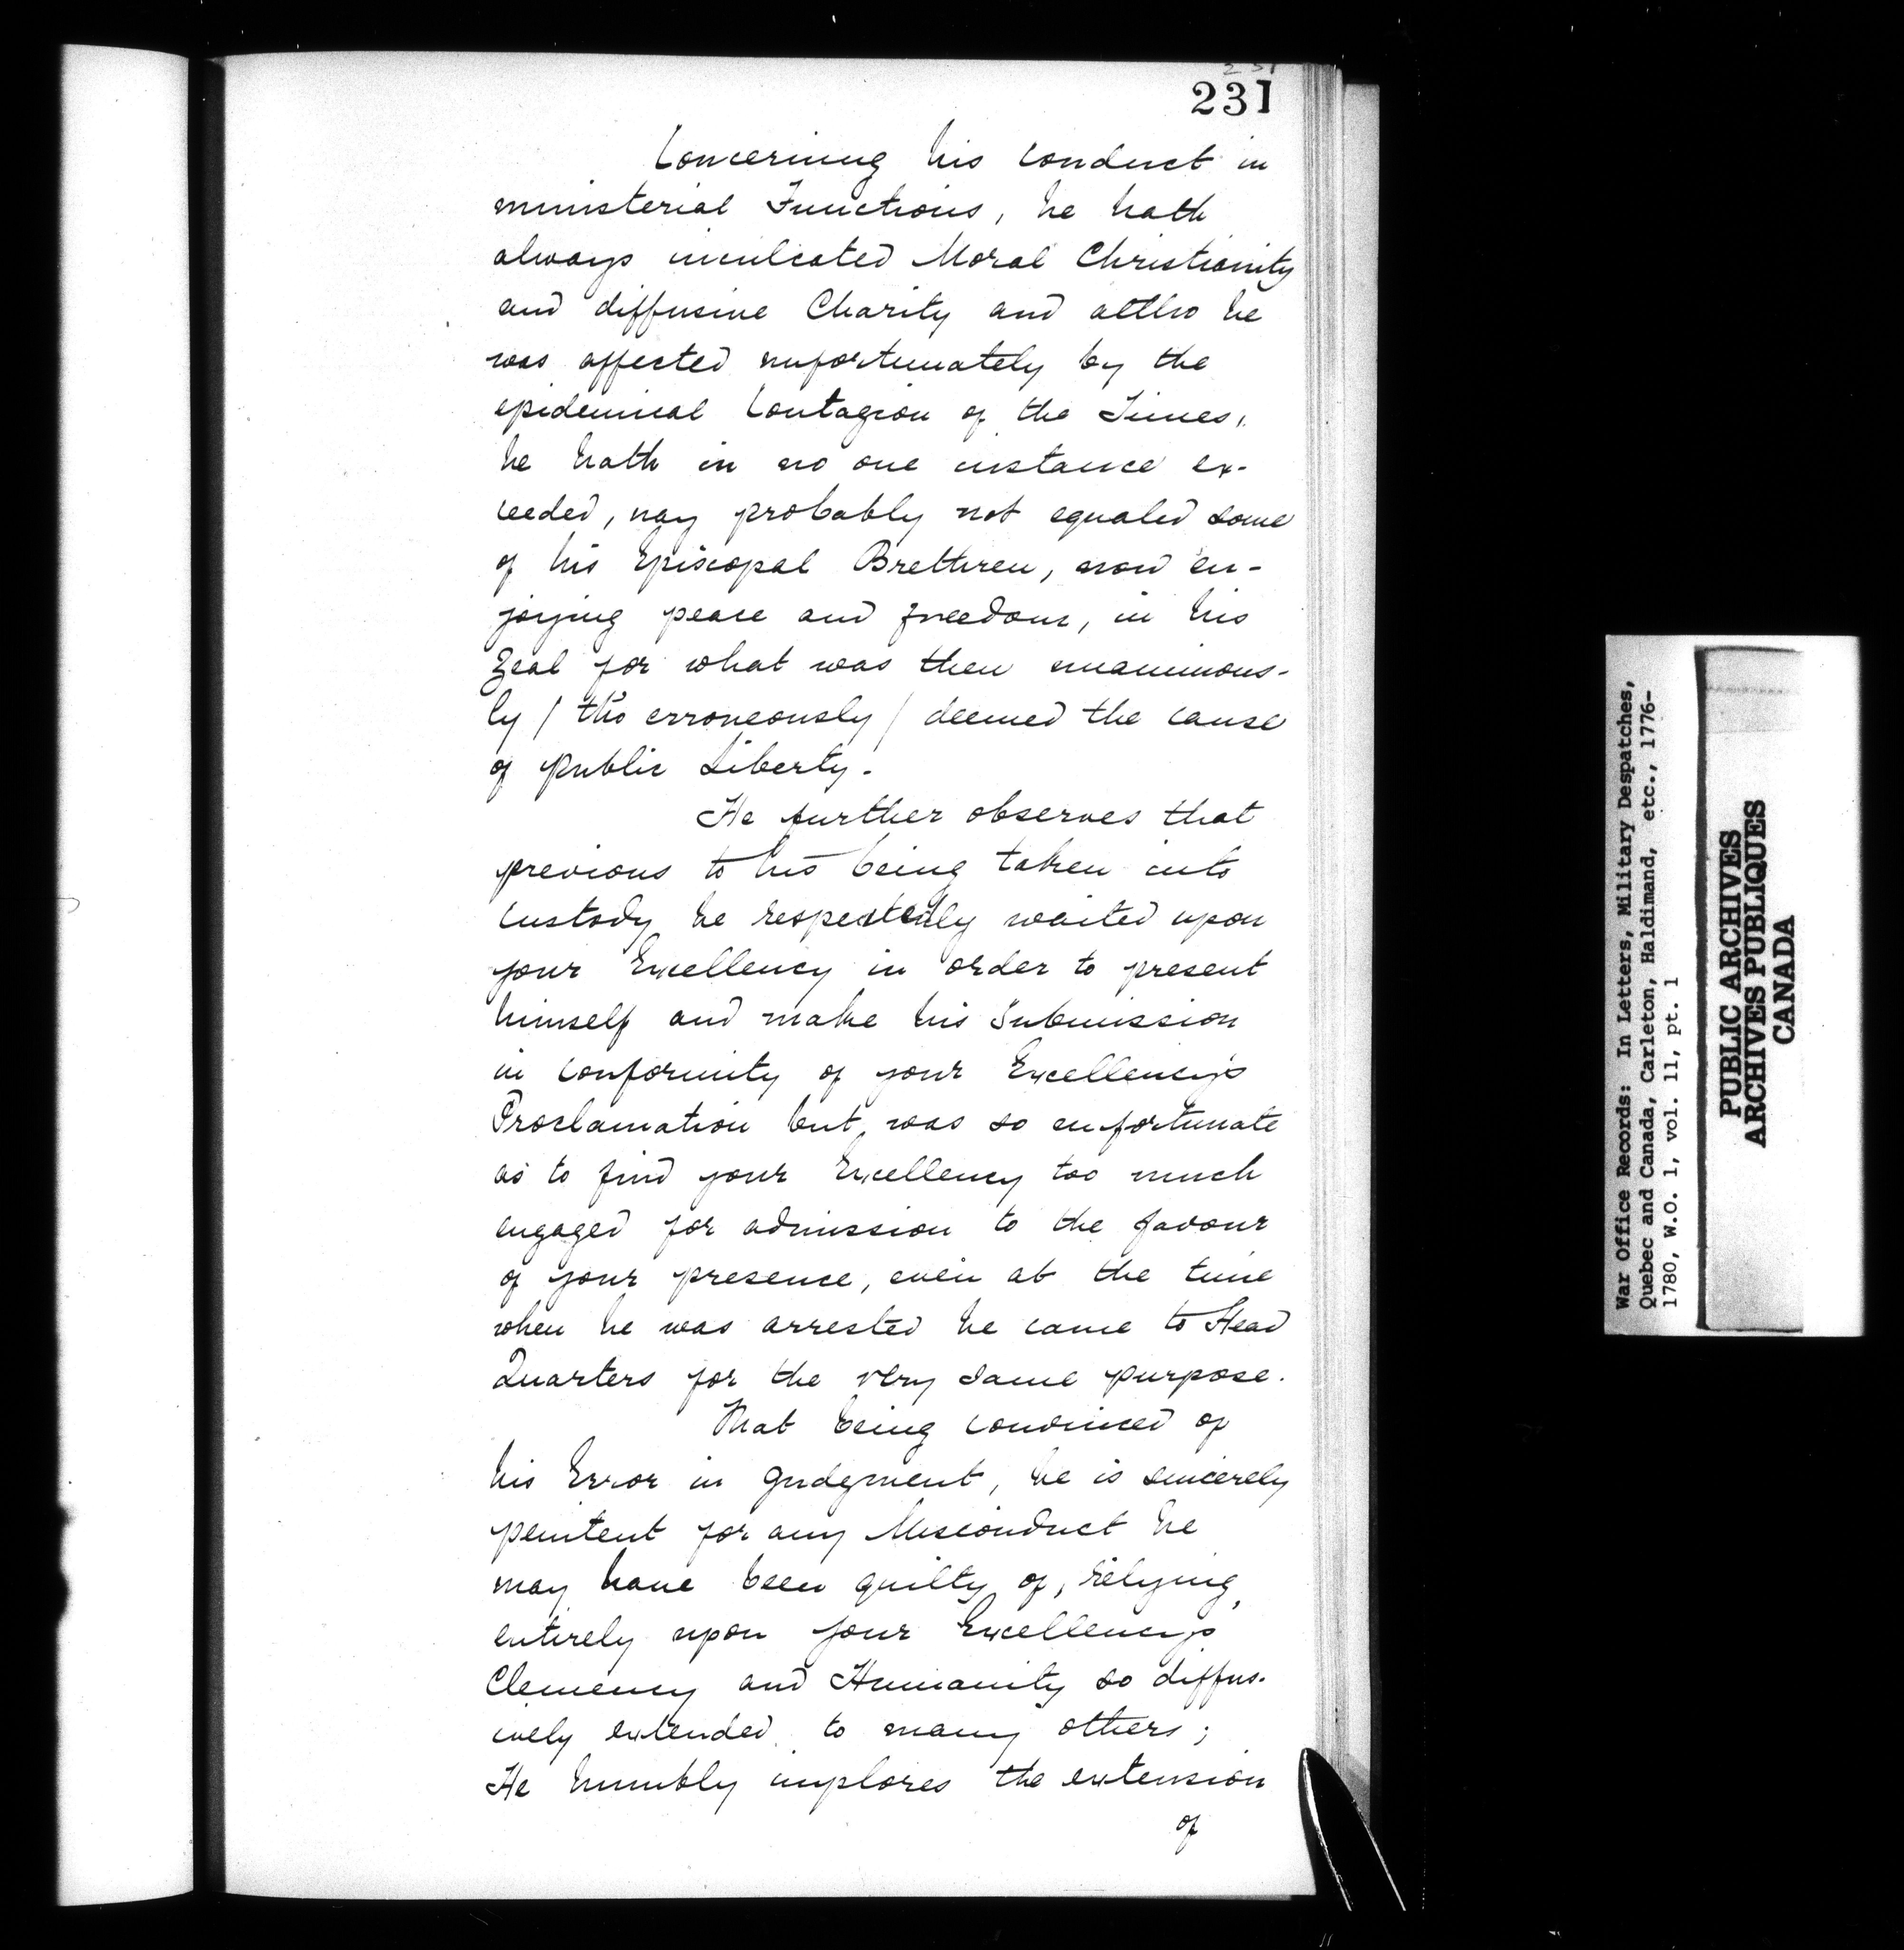 231
231
Concerning his conduct in
ministerial Functions, he hath
always inculcated Moral Christianity
and diffusive Charity and altho he
was affected unfortunately by the
epidemical Contagion of the Times,
he hath in no one instance ex-
ceeded, nay probably not equaled some
of his Episcopal Brethren, now en-
joying peace and freedom, in his
Zeal for what was then unanimous-
ly / tho erroneously / deemed the cause
of public Liberty.
He further observes that
previous to his being taken into
custody he respectedly waited upon
your Excellency in order to present
himself and make his Submission
in conformity of your Excellency's
Proclamation but, was so unfortunate
as to find your Excellency too much
engaged for admission to the favour
of your presence, even at the time
when he was arrested he came to Head
Quarters for the very same purpose.
That being convinced of
his Error in Judgment, he is sincerely
penitent for any Misconduct he
may have been guilty of, relying,
entirely upon your Excellency's
Clemency and Humanity so diffus-
ively extended to many others;
He humbly implores the extension
of
War Office Records: In Letters, Military Despatches,
Quebec and Canada, Carleton, Haldimand, etc., 1776-
1780, W.O. 1, vol. 11, pt. 1
PUBLIC ARCHIVES
ARCHIVES PUBLIQUES
CANADA